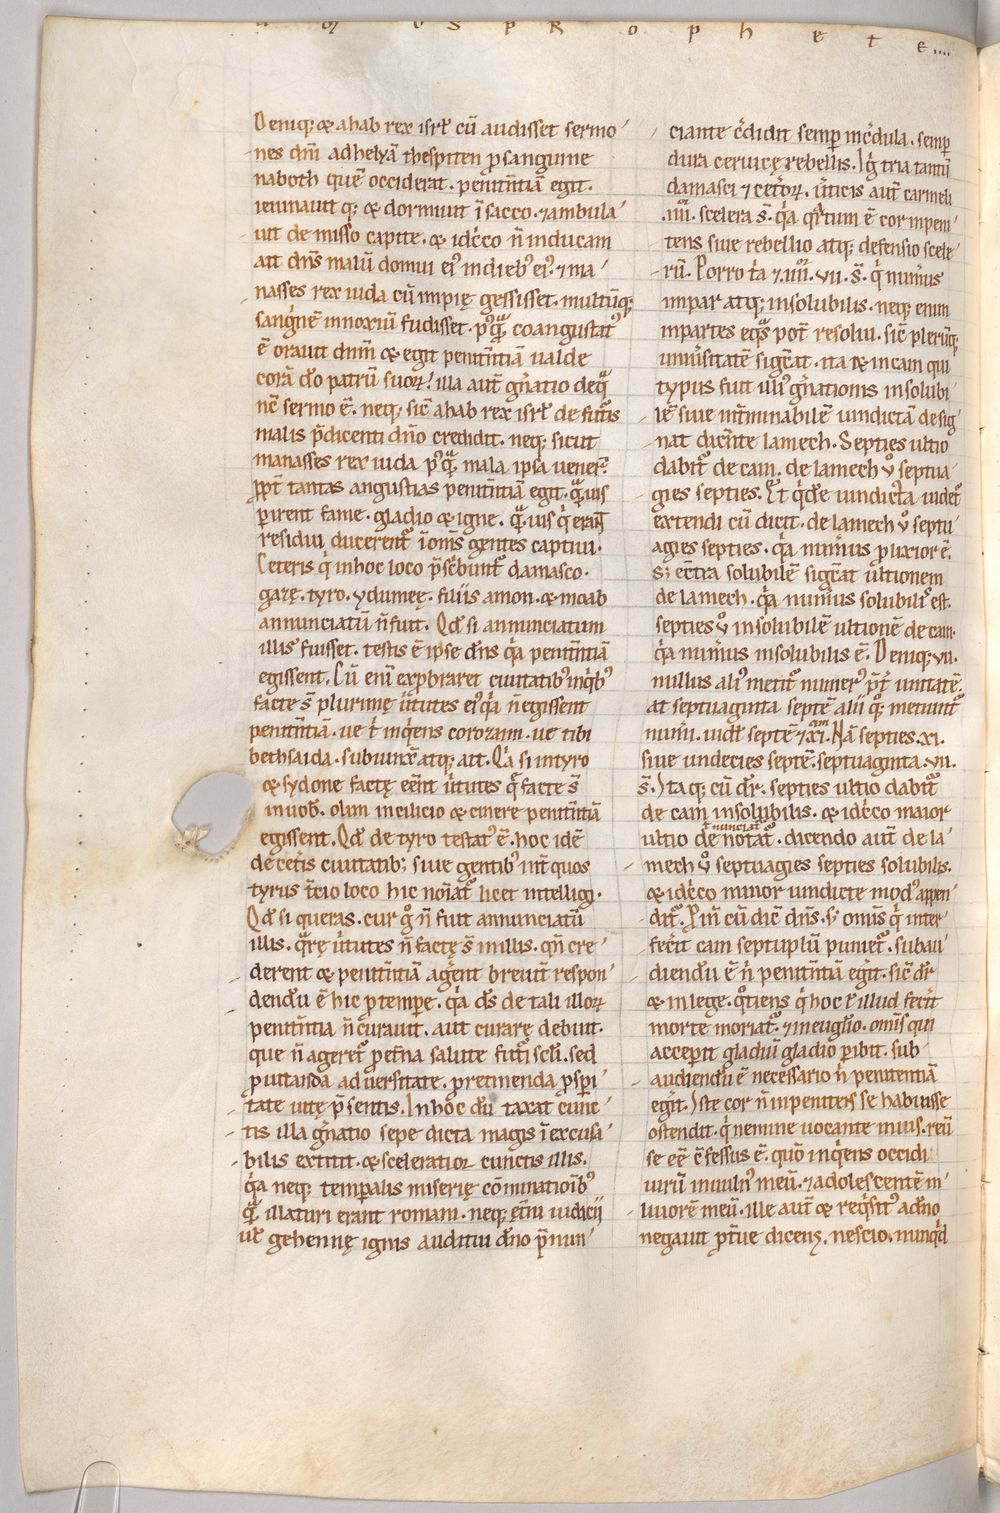 a m o s p R o p h e t e ....
Deniq; & ahab rex isrł cū audisset sermo
nes dnī ad helyā thespiten ꝓ sanguine
naboth quē occiderat. penitn̄tiā egit.
ieiunauit q; & dormiuit ī sacco. ⁊ ambula
uit de misso capite. & idc̄co n̄ inducam
ait dn̄s malū domui ei᷒ in dieb᷒ ei᷒. ⁊ ma
nasses rex iuda cū impię gessisset. multūq;
sanguinē innoxiū fudisset. p᷒qͣ coangustat᷒
ē orauit dnm̄ & egit penitn̄tiā ualde
corā do patrū suoꝝ! illa aut̄ gn̄atio de qͣ
nc̄ sermo ē. neq; sic̄ ahab rex isrł de futis
malis p̄dicenti dno credidit. neq; sicut
manasses rex iuda p᷒qͣ mala ipsa uener̄.
ꝓpt̄ tantas angustias penitn̄tiā egit. qͣuis
ꝑirent fame. gladio & igne. qͣuis q̇ erant
residui ducerent ī om̄s gentes captiui.
Ceteris q̇ in hoc loco p̄sc̄bunt damasco.
gazę. tyro. ydumeę. filiis amon. & moab
annunciatū n̄ fuit. Qd si annunciatum
illis fuisset. testis ē ipse dn̄s q̇a penitn̄tiā
egissent. Cū eni exꝓbraret ciuitatib᷒ in q̇b᷒
facte s̄ plurimę ūtutes ei᷒ q̇a n̄ egissent
penitn̄tiā. ue t̄ inq̇ens corozaim. ue tibi
bethsaida. subiunx̄ atq; ait. Q̇a si in tyro
& sydone factę eēnt ūtutes q̄ facte s̄
in uob̄. olim in cilicio & cinere penitn̄tiā
egissent. Qd de tyro testat᷒ ē. hoc idē
de cet̄is ciuitatib; siue gentib᷒ int̄ quos
tyrus t̄cio loco hic noīat licet intelligi.
Qd si queras. cur gͦ n̄ fuit annunciatū
illis. qͣrę ūtutes n̄ factę s̄ in illis. qn̄ cre
derent & penitn̄tiā agerent breuit̄ respon
dendū ē hic ꝓ tempe. q̇a ds̄ de tali illoꝝ
penitn̄tia n̄ curauit. aut curare debuit.
que n̄ ageret ꝓ et̄na salute futi scli. sed
ꝓ uitanda aduersitate. ꝓ retinenda ꝓspi
tate uitę p̄sentis. In hoc dū taxat cunc
tis illa gn̄atio sepe dicta magis ī excusa
bilis extitit. & sceleratior cunctis illis.
q̇a neq; temꝑalis miserię cōminationib᷒
qͣ illaturi erant romani. neq; et̄ni iudicii
ut gehennę ignis auditui dno p̄nun
ciante c̄didit semꝑ inc̄dula. semꝑ
dura ceruicę rebellis. Iġ tria tantū
damasci ⁊ cet̄oꝝ. ūticis aut̄ carmeli
.iiii. scelera s̄. q̇a qͣrtum ē cor inpeni
tens siue rebellio atq; defensio scele
rū. Porro t̄a ⁊ .iiii. .vii. s̄. q̇ num̄us
impar atq; insolubilis. neq; enim
in partes eqͣs pot̄ resolui. sic̄ plerūq;
uniūsitatē signat. ita & in cain qui
typus fuit illi᷒ gn̄ationis insolubi
lē siue int̄minabilē uindictā desig
nat dicn̄te lamech. Septies ultio
dabit de cain. de lamech ů septua
gies septies. Et q̇de uindicta uidet
extendi cū dicit. de lamech ů septu
agies septies. q̇a num̄us ꝓlixior ē.
S; ec̄tra solubilē signat ultionem
de lamech. q̇a num̄us solubilis est.
septies ů insolubilē ultionē de cain.
q̇a num̄us insolubilis ē. Deniq; .vii.
nullus ali᷒ metit numer᷒ p̄t̄ unitatē.
at septuaginta septē alii qͦq; metiunt
num̄i. uidł septē ⁊ .xi. Nā septies .xi.
siue undecies septē. septuaginta .vii.
s̄. Itaq; cū dr̄. septies ultio dabit
de cain insolubilis. & idc̄co maior
ultio denotat. dicendo aut̄ de la
mech ů septuagies septies solubilis.
& idc̄co minor uindicte mod᷒ appen
dit. Pim̄ cū dic̄ dn̄s. s; omīs q̇ inter
fec̄it cain septuplū puniet. subau
diendū ē n̄ penitn̄tiā egit. sic̄ dr̄
& in lege. qͦtiens q̇ hoc ł illud fec̄it
morte moriat. ⁊ in euglio. omīs qui
acceperit gladiū gladio ꝑibit. sub
audiendū ē necessario n̄ penitentiā
egit. Iste cor n̄ inpenitens se habuisse
ostendit. q̇ nemine uocante in ius. reū
se eē c̄fessus ē. quō inq̇ens occidi
uirū in uuln᷒ meū. ⁊ adolescentē in
liuorē meū. ille aut̄ & req̇sit᷒ a dno
negauit ꝓt̄ue dicens. nescio. nunq̇d